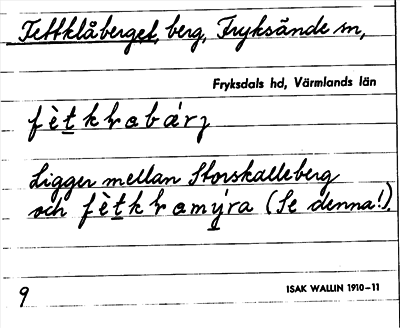 Fettklåberget, berg, Fryksände sn,
Fryksdals hd, Värmlands län
fètkɽabárj
Ligger mellan Storskalleberg
och fètkɽamýra (Se denna!).
9
ISAK WALLIN 1910–11